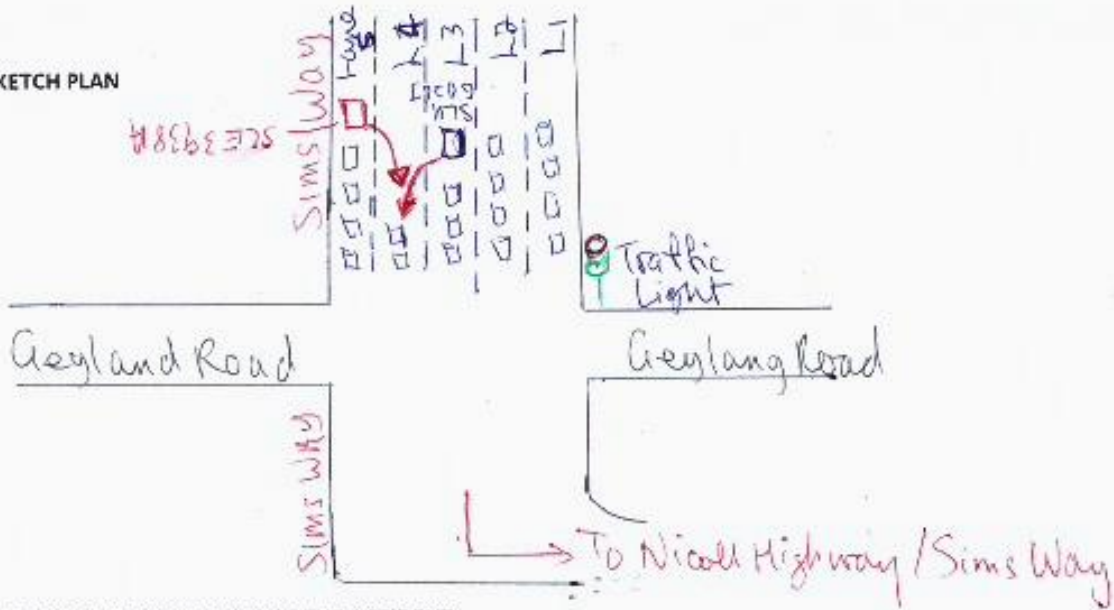 KETCH PLAN
Sims Way
Lane 5
L4
L3
L2
L1
SLE3938A
Traffic
Light
Geyland Road
Geylang Road
Sims Way
To Nicoll Highway / Sims Way